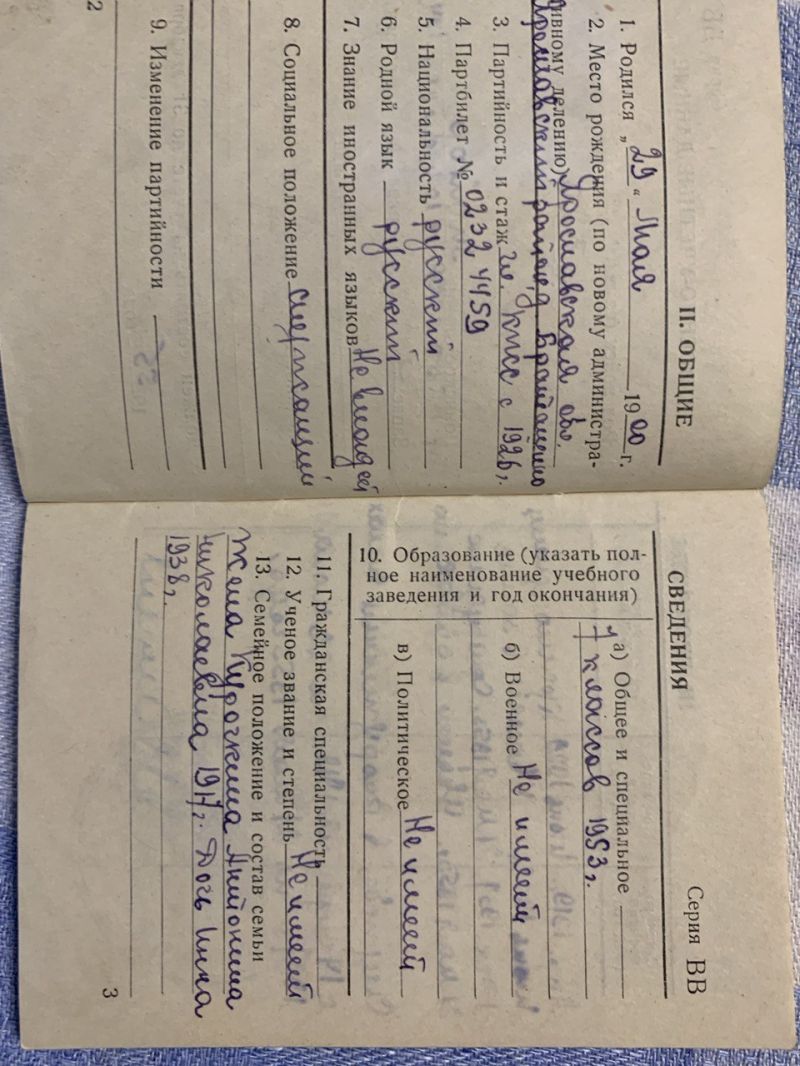 II. ОБЩИЕ
1. Родился „29“ Мая 1900 г.
2. Место рождения (по новому администра-
тивному делению) Ярославская обл.
район, д.
3. Партийность и стаж чл. КПСС с 1926 г.
4. Партбилет № 02324459
5. Национальность русский
6. Родной язык русский
7. Знание иностранных языков Не владеет
8. Социальное положение служащий
9. Изменение партийности
2
СВЕДЕНИЯ
Серия ВВ
10. Образование (указать пол-
ное наименование учебного
заведения и год окончания)
а) Общее и специальное
7 классов 1953 г.
б) Военное Не имеет
в) Политическое Не имеет
11. Гражданская специальность
12. Ученое звание и степень Не имеет
13. Семейное положение и состав семьи
Жена Курочкина Антонина
Николаевна 1917 г. Дочь Инна
1938 г.
3